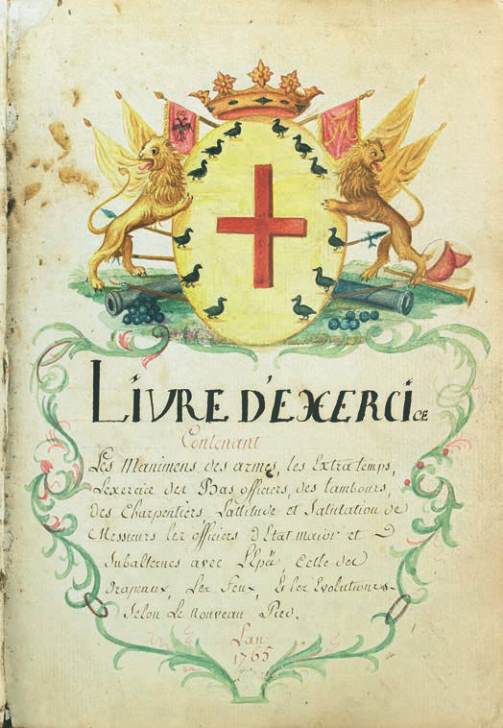 LIVRE D'EXERCICE
Contenant
Les Manimens des armes, les Extra temps,
L'exercice des Bas officiers, des tambours,
des Charpentiers, L'attitude et Salutation de
Messieurs les officiers d'Etat maior et
Subalternes avec Celle des
Drapeaux, Les Feux, & les Evolutions
Selon Le Nouveau Pied.
L'an
1765